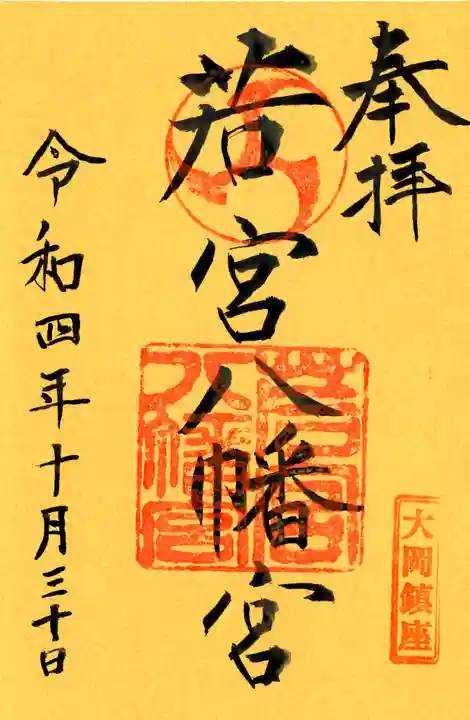 奉拝
大岡鎮座
若宮八幡宮
令和四年十月三十日